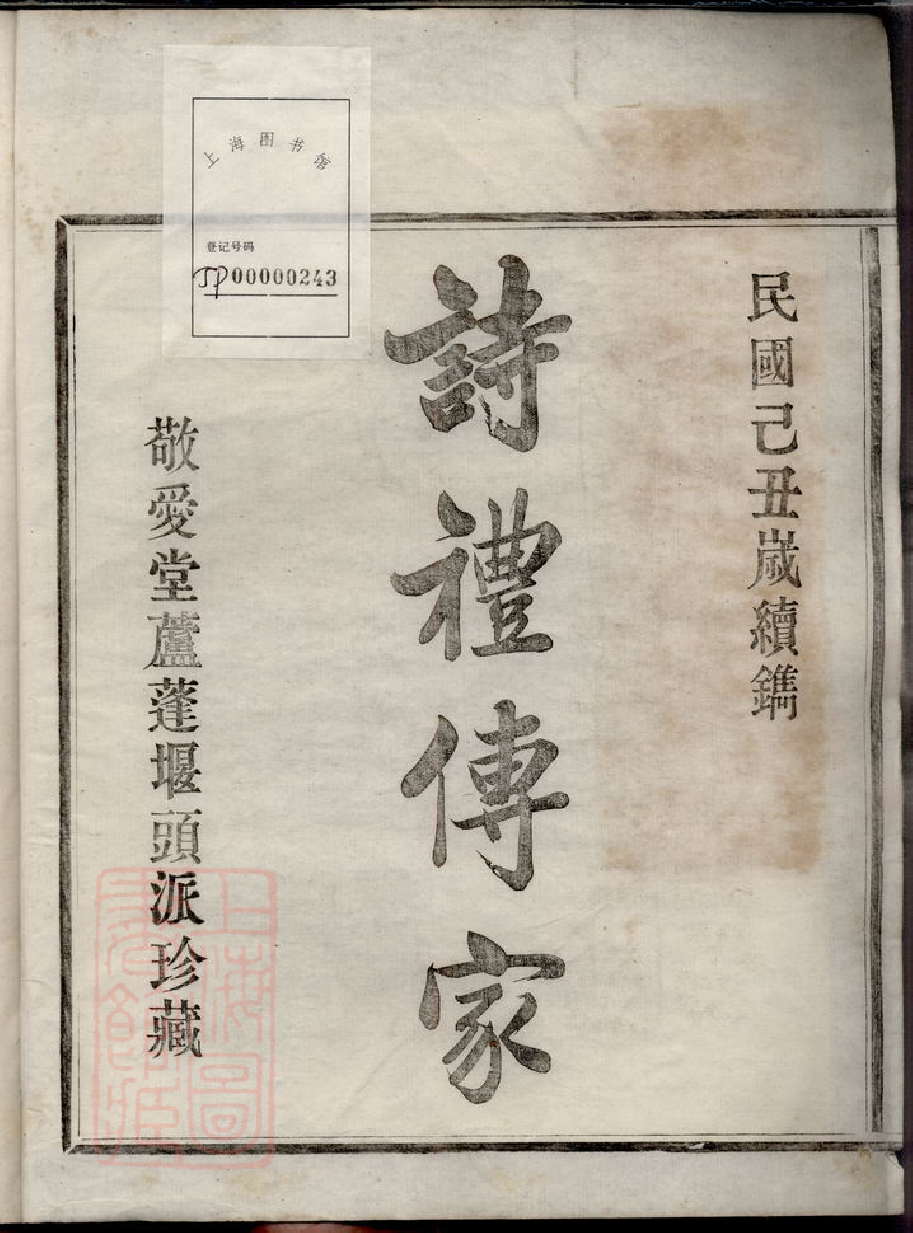 民國己丑嵗續鐫
詩禮傳家
敬愛堂蘆蓬堰頭派珍藏
上海图书馆
登记号码
JP00000243
上海圖
書館藏